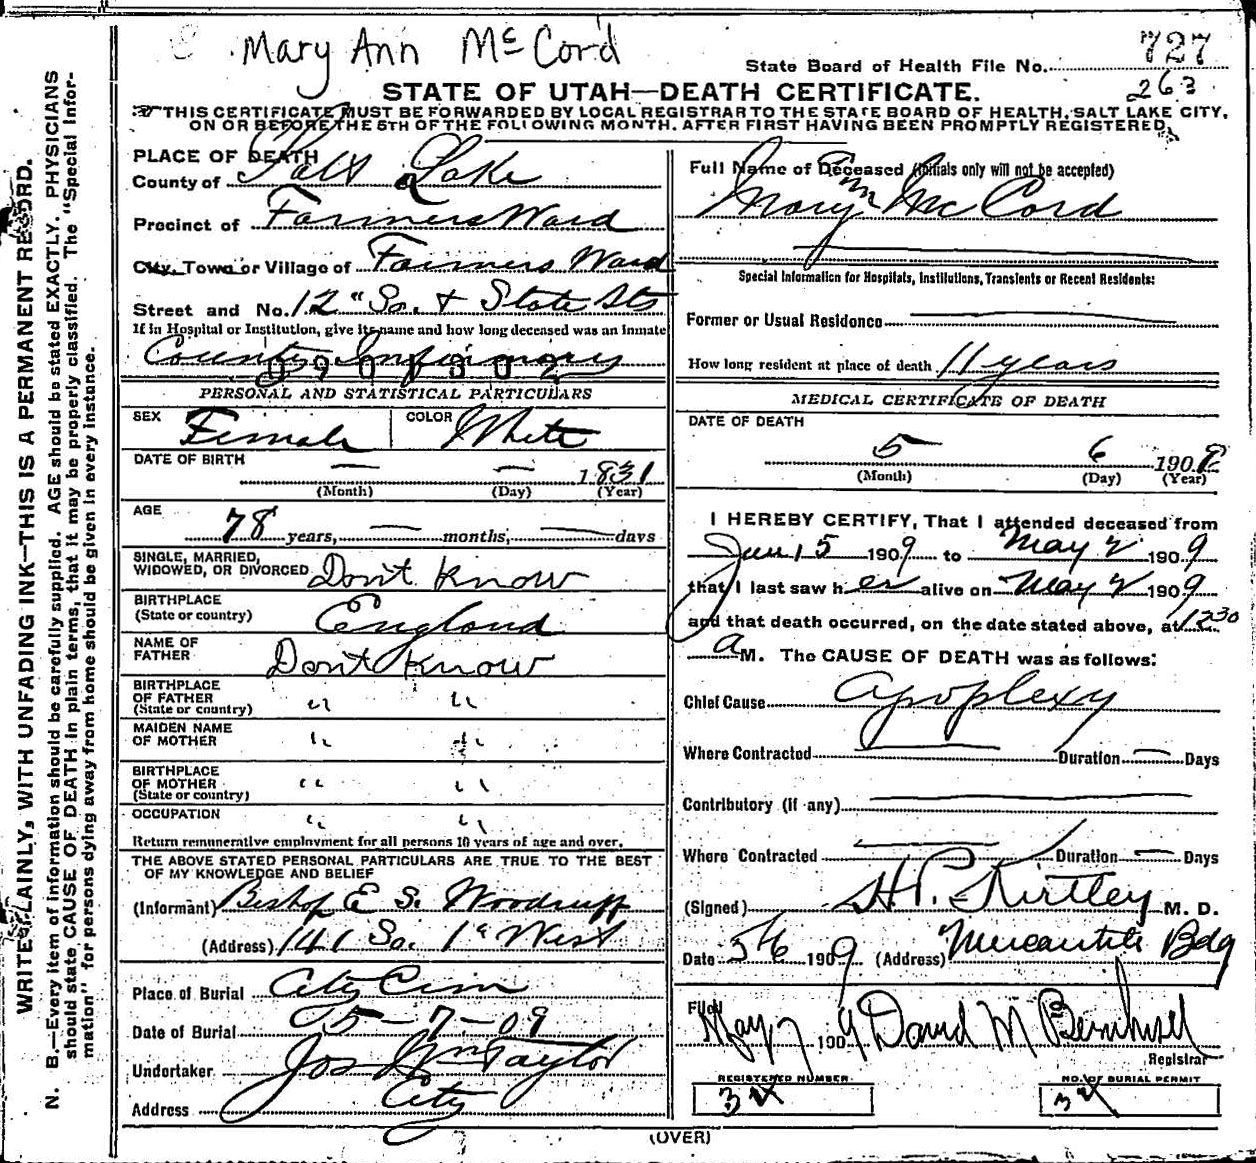 Mary Ann McCord
727
State Board of Health File No.
263
STATE OF UTAH—DEATH CERTIFICATE.
THIS CERTIFICATE MUST BE FORWARDED BY LOCAL REGISTRAR TO THE STATE BOARD OF HEALTH, SALT LAKE CITY,
ON OR BEFORE THE 5TH OF THE FOLLOWING MONTH. AFTER FIRST HAVING BEEN PROMPTLY REGISTERED.
WRITE PLAINLY, WITH UNFADING INK—THIS IS A PERMANENT RECORD.
N. B.—Every item of information should be carefully supplied. AGE should be stated EXACTLY. PHYSICIANS
should state CAUSE OF DEATH in plain terms, that it may be properly classified. The "Special Infor-
mation" for persons dying away from home should be given in every instance.
PLACE OF DEATH
County of Salt Lake
Precinct of Farmers Ward
City, Town or Village of Farmers Ward
Street and No. 12" So. + State Sts
If in Hospital or Institution, give its name and how long deceased was an inmate
County Infirmary
0901302
PERSONAL AND STATISTICAL PARTICULARS
SEX Female COLOR White
DATE OF BIRTH — — 1831
(Month) (Day) (Year)
AGE
78 years, — months, — days
SINGLE, MARRIED,
WIDOWED, OR DIVORCED Don't Know
BIRTHPLACE
(State or country) England
NAME OF
FATHER Don't Know
BIRTHPLACE
OF FATHER
(State or country) " "
MAIDEN NAME
OF MOTHER " "
BIRTHPLACE
OF MOTHER
(State or country) " "
OCCUPATION " "
Return remunerative employment for all persons 10 years of age and over.
THE ABOVE STATED PERSONAL PARTICULARS ARE TRUE TO THE BEST
OF MY KNOWLEDGE AND BELIEF
(Informant) Bishop E S. Woodruff
(Address) 141 So. 1st West
Place of Burial City Cem
Date of Burial 5-7-09
Undertaker Jos Wm Taylor
Address City
Full Name of Deceased (initials only will not be accepted)
Mary Ann McCord
Special Information for Hospitals, Institutions, Transients or Recent Residents:
Former or Usual Residence
How long resident at place of death 11 years
MEDICAL CERTIFICATE OF DEATH
DATE OF DEATH
5 6 190
(Month) (Day) (Year)
I HEREBY CERTIFY, That I attended deceased from
Jun 15 1909 to May 2 1909
that I last saw her alive on May 2 1909
and that death occurred, on the date stated above, at 12 30
a M. The CAUSE OF DEATH was as follows:
Chief Cause Apoplexy
Where Contracted — Duration — Days
Contributory (if any)
Where Contracted — Duration — Days
(Signed) H. P. Kirtley M. D.
Date 5/6 1909 (Address) Mercantile Bdg
Filed May 7 1909 David M Bernhisel
Registrar
REGISTERED NUMBER NO. OF BURIAL PERMIT
(OVER)